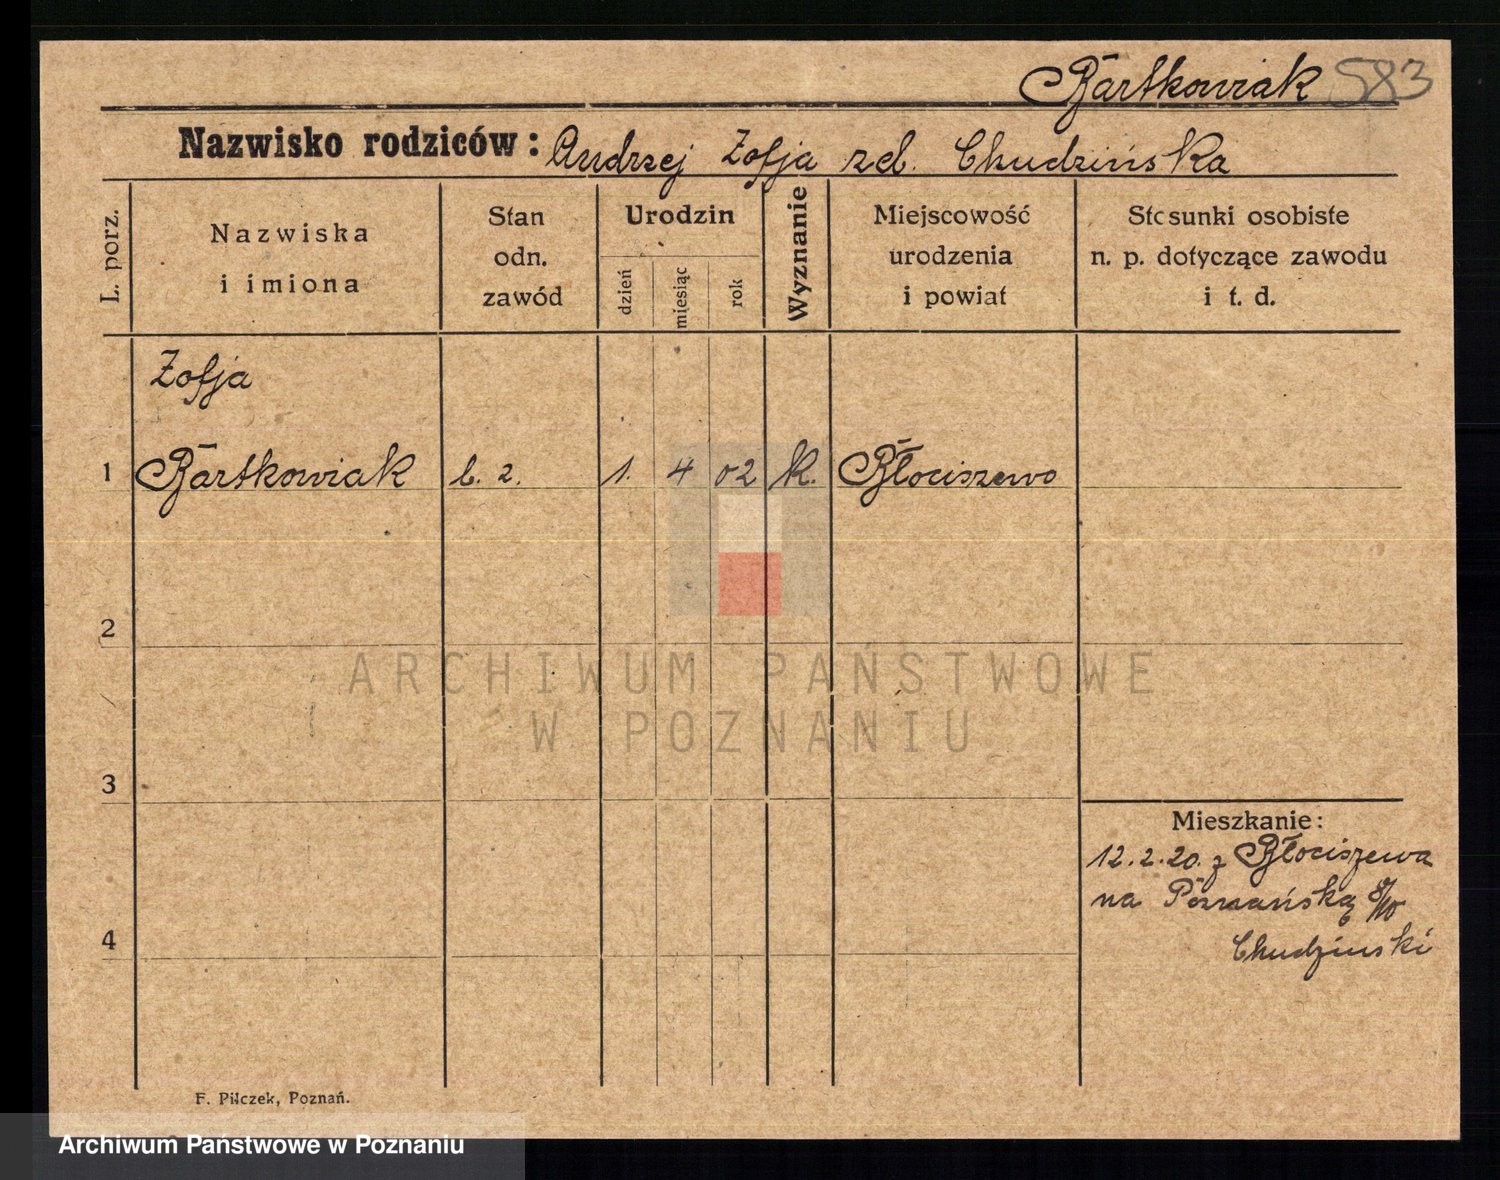 Bartkowiak 583
Nazwisko rodziców: Andrzej Zofja zd. Chudzińska
L. porz.
Nazwiska
i imiona
Stan
odn.
zawód
Urodzin
dzień
miesiąc
rok
Wyznanie
Miejscowość
urodzenia
i powiat
Stosunki osobiste
n. p. dotyczące zawodu
i t. d.
Zofja
1 Bartkowiak b. z. 1. 4 02 k. Błociszewo
2
ARCHIWUM PAŃSTWOWE
W POZNANIU
3
Mieszkanie:
12.2.20. z Błociszewa
na Poznańską
4
Chudzinski
F. Pilczek, Poznań.
Archiwum Państwowe w Poznaniu